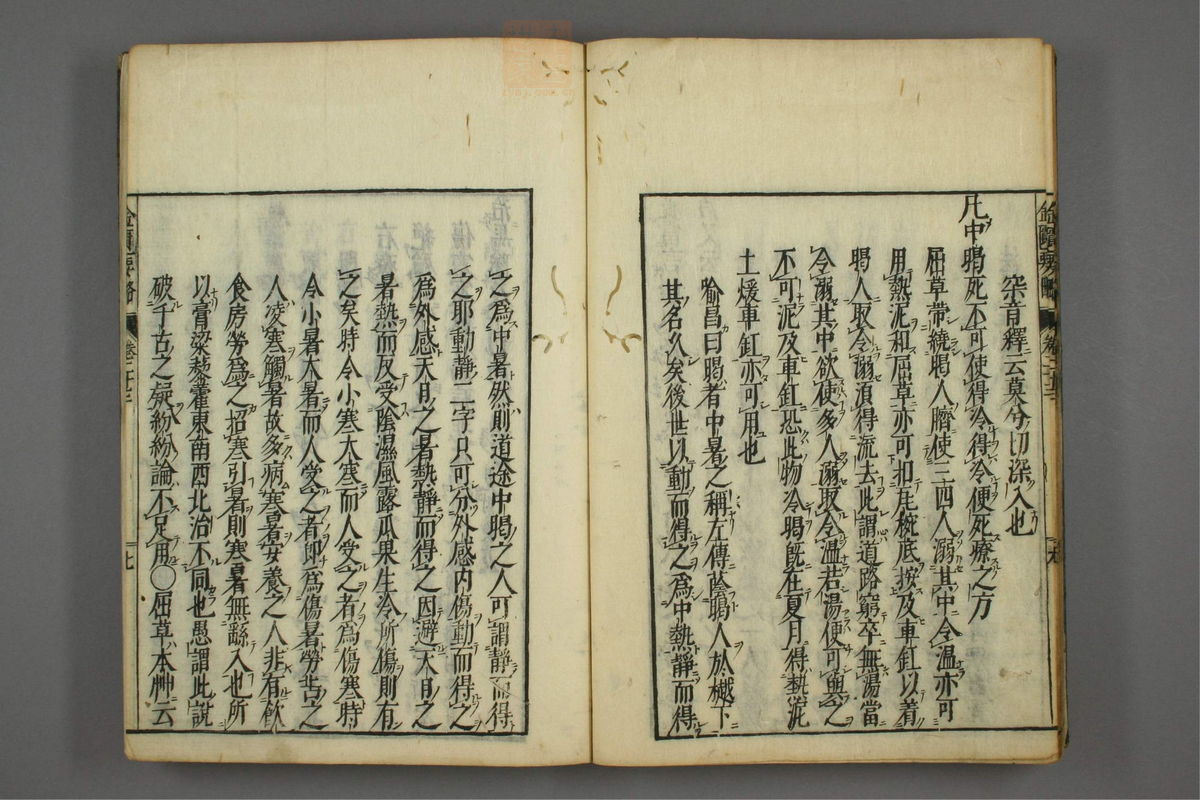 金匱要略
卷二十三
窂音釋云莫兮切深入也
凡中暍死不可使得冷得冷便死療之方
屈草帶繞暍人臍使三四人溺其中令溫亦可
用熱泥和屈草亦可扣瓦椀底按及車缸以着
暍人取令溺須得流去此謂道路窮卒無湯當
令溺其中欲使多人溺取令溫若湯便可與之
不可泥及車缸恐此物冷暍既在夏月得熱泥
土煖車缸亦可用也
喻昌曰暍者中暑之稱左傳蔭暍人於樾下
其名久矣後世以動而得之為中熱靜而得
之為中暑然則道途中暍之人可謂靜而得
之耶動靜二字只可分外感內傷動而得之
為外感天日之暑熱靜而得之因避天日之
暑熱而反受陰濕風露瓜果生冷所傷則有
之矣時令小寒大寒而人受之者為傷寒時
令小暑大暑而人受之者即為傷暑勞苦之
人凌寒觸暑故多病寒暑安養之人非有飲
食房勞為之招寒引暑則寒暑無繇入也所
以膏粱藜藿東南西北治不同也愚謂此說
破千古之疑紛紛論不足用○屈草本艸云
金匱要略
卷二十三
七